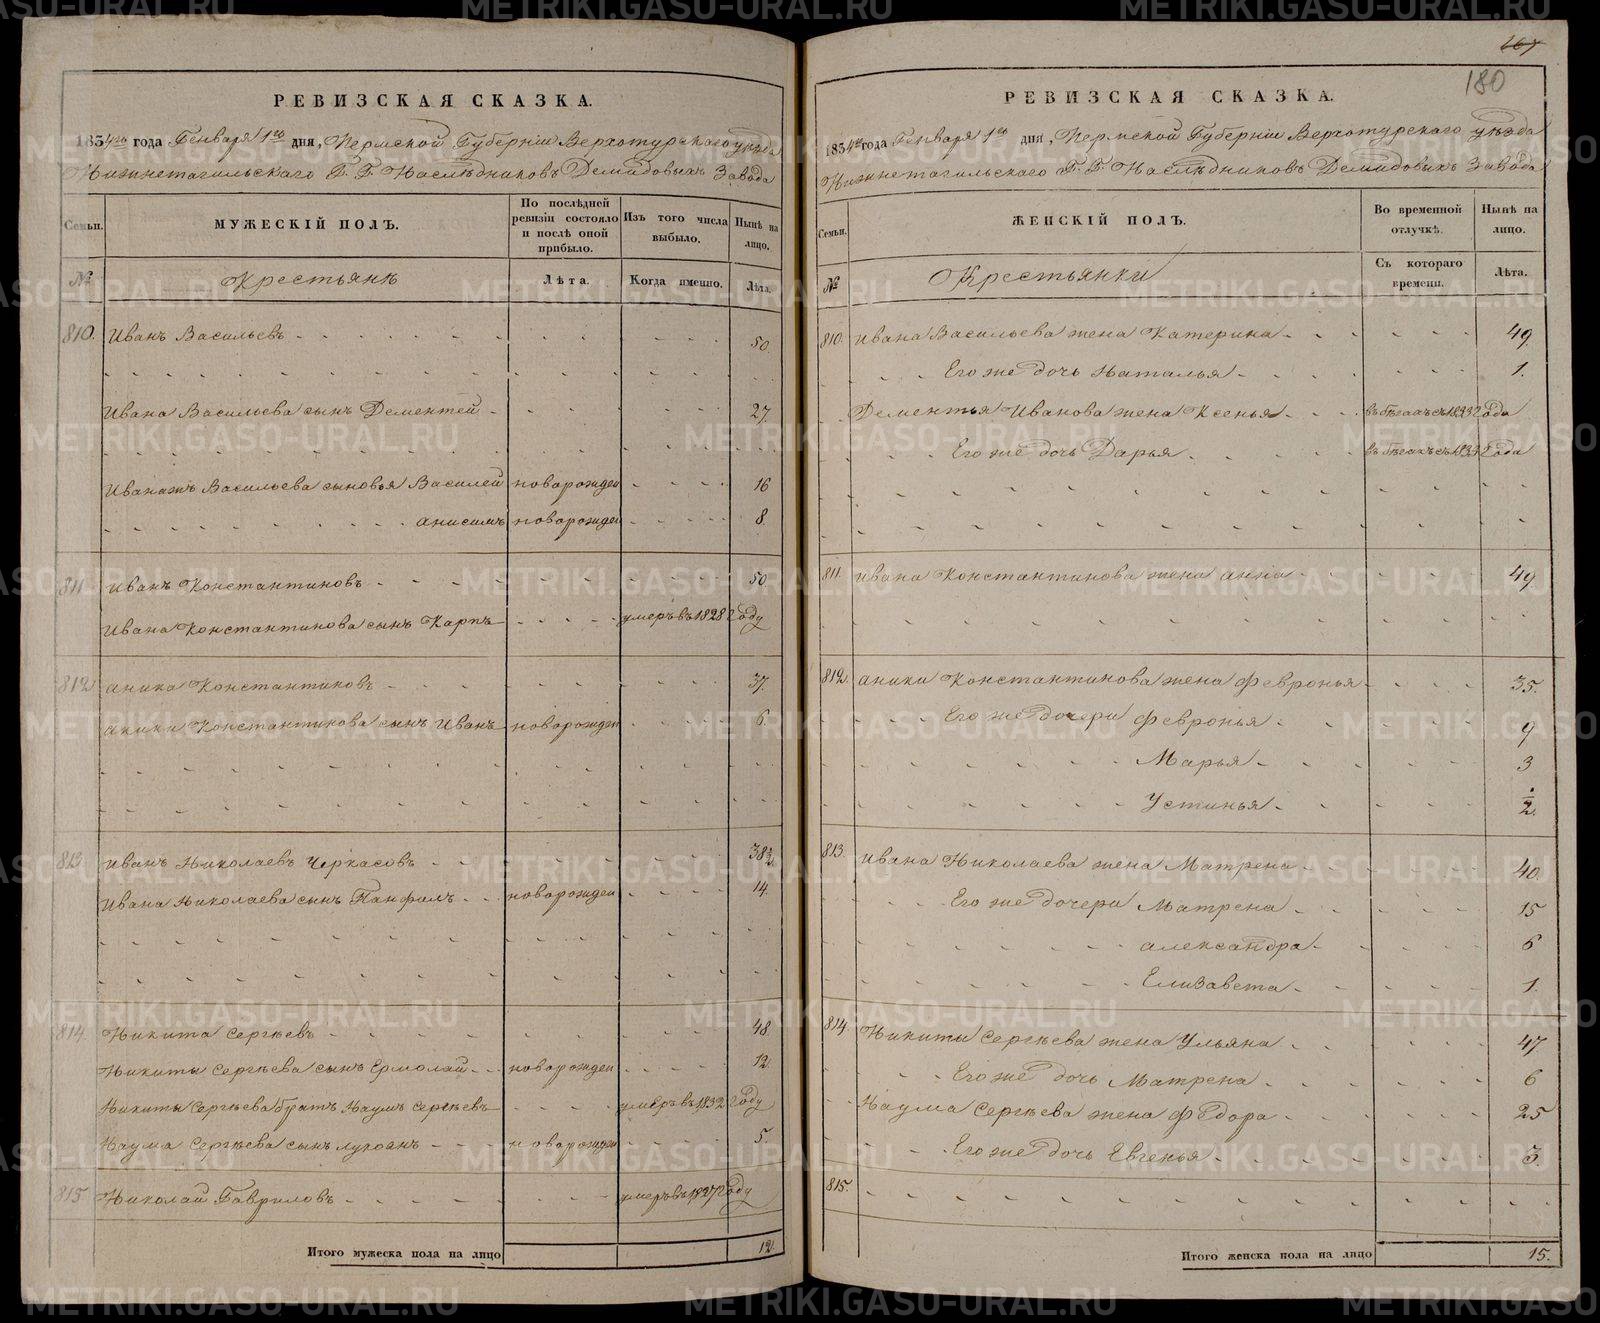 167
180
РЕВИЗСКАЯ СКАЗКА.
1834го года Генваря 1го дня, Пермской Губернiи Верхотурскаго уѣзда
Нижнетагильскаго Г. Г. Наслѣдниковъ Демидовыхъ Завода
Семьи. МУЖЕСКIЙ ПОЛЪ. По послѣдней ревизiи состояло и послѣ оной прибыло. Изъ того числа выбыло. Нынѣ на лицо.
№ Крестьянѣ Лѣта. Когда именно. Лѣта.
810. Иванъ Васильевъ 50.
Ивана Васильева сынъ Дементей 27.
Иванажъ Васильева сыновья Василей новорожден 16
анисимъ новорожден 8.
811. Иванъ Константиновъ 50
Ивана Константинова сынъ Карпъ умеръ въ 1828 Году
812 аника Константиновъ 37.
аники Константинова сынъ Иванъ новорожден 6.
813. Иванъ Николаевъ Черкасовъ 38½
Ивана Николаева сынъ Панфилъ новорожден 14.
814. Никита Сергѣевъ 48
Никиты Сергѣева сынъ Ермолай новорожден 12.
Никиты Сергѣева братъ Наумъ Сергѣевъ умеръ въ 1832 Году
Наума Сергѣева сынъ лукоянъ новорожден 5.
815 Николай Гавриловъ умеръ въ 1827 Году
Итого мужеска пола на лицо 12.
РЕВИЗСКАЯ СКАЗКА.
1834го года Генваря 1го дня, Пермской Губернiи Верхотурскаго уѣзда
Нижнетагильскаго Г. Г. Наслѣдниковъ Демидовыхъ Завода
Семьи. ЖЕНСКIЙ ПОЛЪ. Во временной отлучкѣ. Нынѣ на лицо.
№ Крестьянки Съ котораго времени. Лѣта.
810. Ивана Васильева жена Катерина 49.
Его же дочь Наталья 1.
Дементья Иванова жена Ксенья въ бѣгахъ съ 1832 Года
Его же дочь Дарья въ бѣгахъ съ 1832 Года
811. Ивана Константинова жена анна 49
812. аники Константинова жена Февронья 35.
Его же дочери Февронья 9
Марья 3
Устинья ½
813. Ивана Николаева жена Матрена 40.
Его же дочери Матрена 15
александра 6
Елизавета 1.
814. Никиты Сергѣева жена Ульяна 47
Его же дочь Матрена 6
Наума Сергѣева жена Федора 25
Его же дочь Евгенья 3.
815.
Итого женска пола на лицо 15.
METRIKI.GASO-URAL.RU